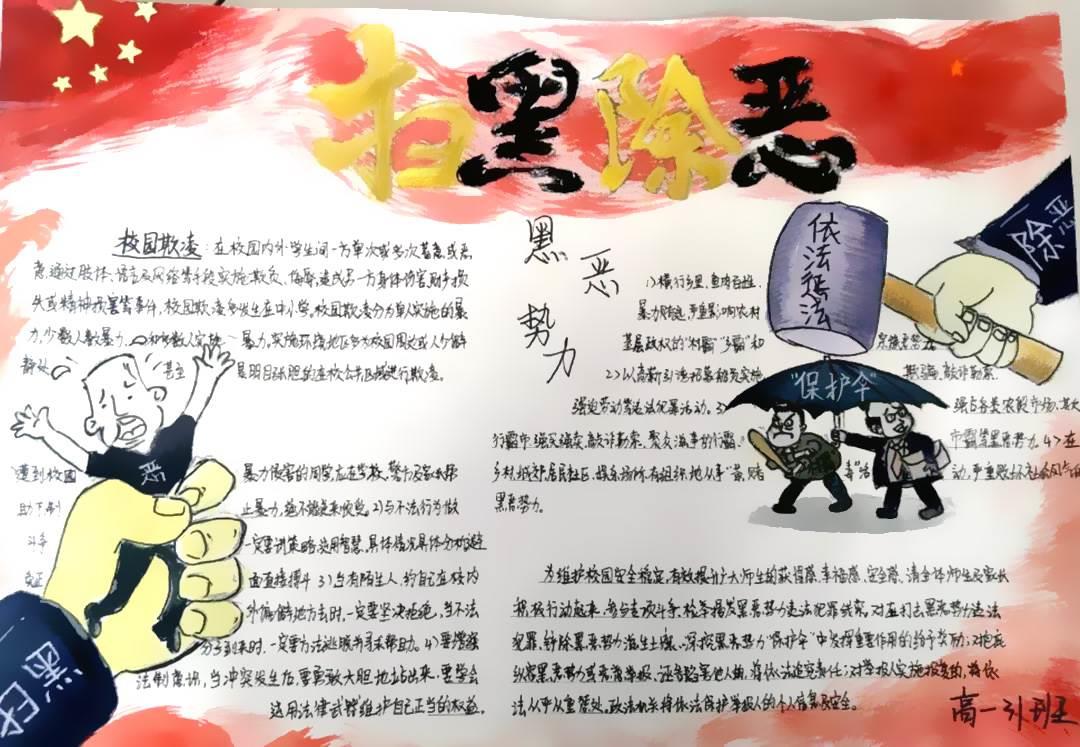 扫黑除恶
校园欺凌：在校园内外学生间一方单次或多次蓄意或恶
意通过肢体、语言及网络等手段实施欺负、侮辱，造成另一方身体伤害、财产损
失或精神损害等事件，校园欺凌多发生在中小学，校园欺凌分为单人实施的暴
力，少数人数暴力，和多数人实施暴力，实施环境地区多为校园周边或人少僻
静处 甚至 是明目张胆的在校公共区域进行欺凌。
恶
遭到校园 暴力侵害的同学应在学校、警方及家长帮
助下制 止暴力，绝不能逆来顺受。2)与不法行为做
斗争 一定要讲策略，运用智慧，具体情况具体分析，避
免正 面直接搏斗 3)当有陌生人约自己在校内
外偏僻地方去时，一定要坚决拒绝，当不法
分子到来时，一定要方法逃脱并寻求帮助。4)要增强
法制意识，当冲突发生后，要勇敢大胆地站出来，要学会
运用法律武器维护自己正当的权益。
黑
恶势力
1)横行乡里，鱼肉百姓，
暴力财迷，严重影响农村
基层政权的"村霸""乡霸"和 宗族恶势力
2)以高薪引诱招募组员实施 欺骗、敲诈勒索、
强迫劳动等违法犯罪活动。3) 强占各类农贸市场、其次
行霸市、强买强卖、敲诈勒索、聚众滋事的行霸、 市霸等黑恶势力。4>在
乡村、城郊、居民社区、娱乐场所，有组织地从事"黄、赌 毒"活 动，严重败坏社会风气的
黑恶势力。
依法惩法
除恶
"保护伞"
为维护校园安全稳定，有效提升广大师生的获得感、幸福感、安全感，请全体师生及家长
积极行动起来，参与专项斗争，检举揭发黑恶势力违法犯罪线索，对在打击黑恶势力违法
犯罪，铲除黑恶势力滋生土壤、深挖黑恶势力"保护伞"中发挥重要作用的给予奖励；对包庇
纵容黑恶势力或恶意举报、诬告陷害他人的，将依法追究责任；对举报人实施报复的，将依
法从严从重惩处。政法机关将依法保护举报人的个人信息及安全。
高一31班